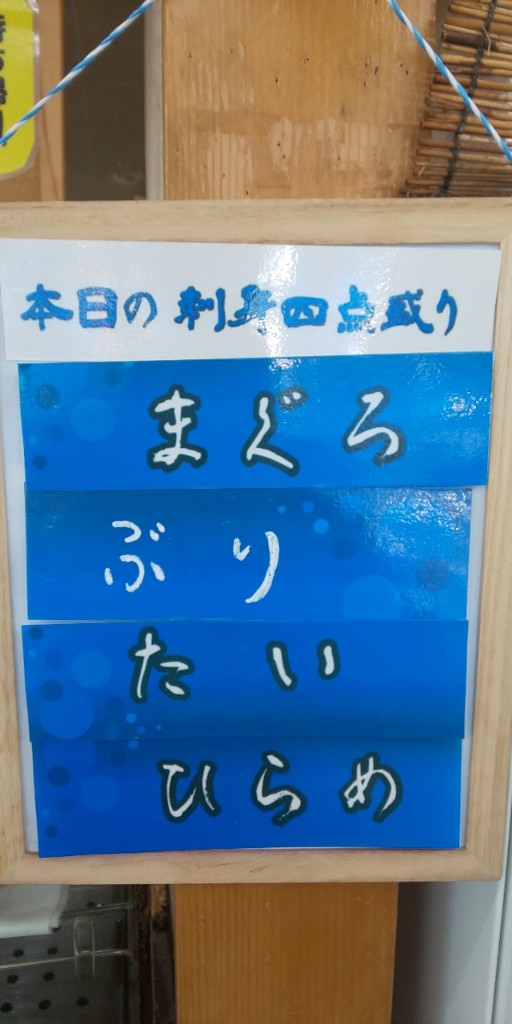 本日の刺身四点盛り
まぐろ
ぶり
たい
ひらめ